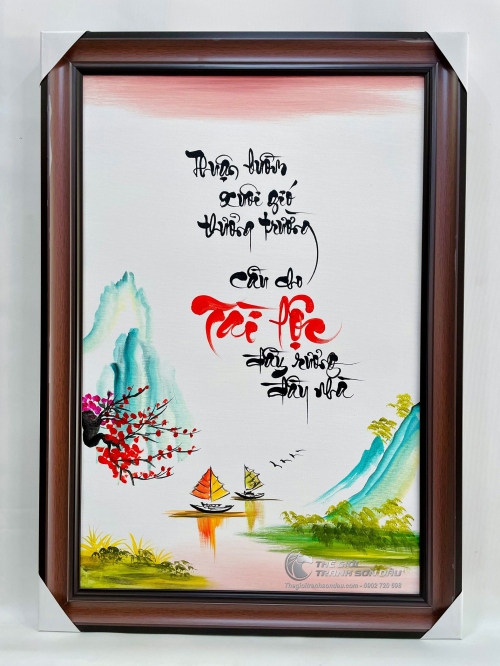 Thuận buồm
xuôi gió
thường trường
cầu cho
Tài lộc
đầy rương
đầy nhà
THẾ GIỚI
TRANH SƠN DẦU
Thegioitranhsondau.com - 0902 739 698